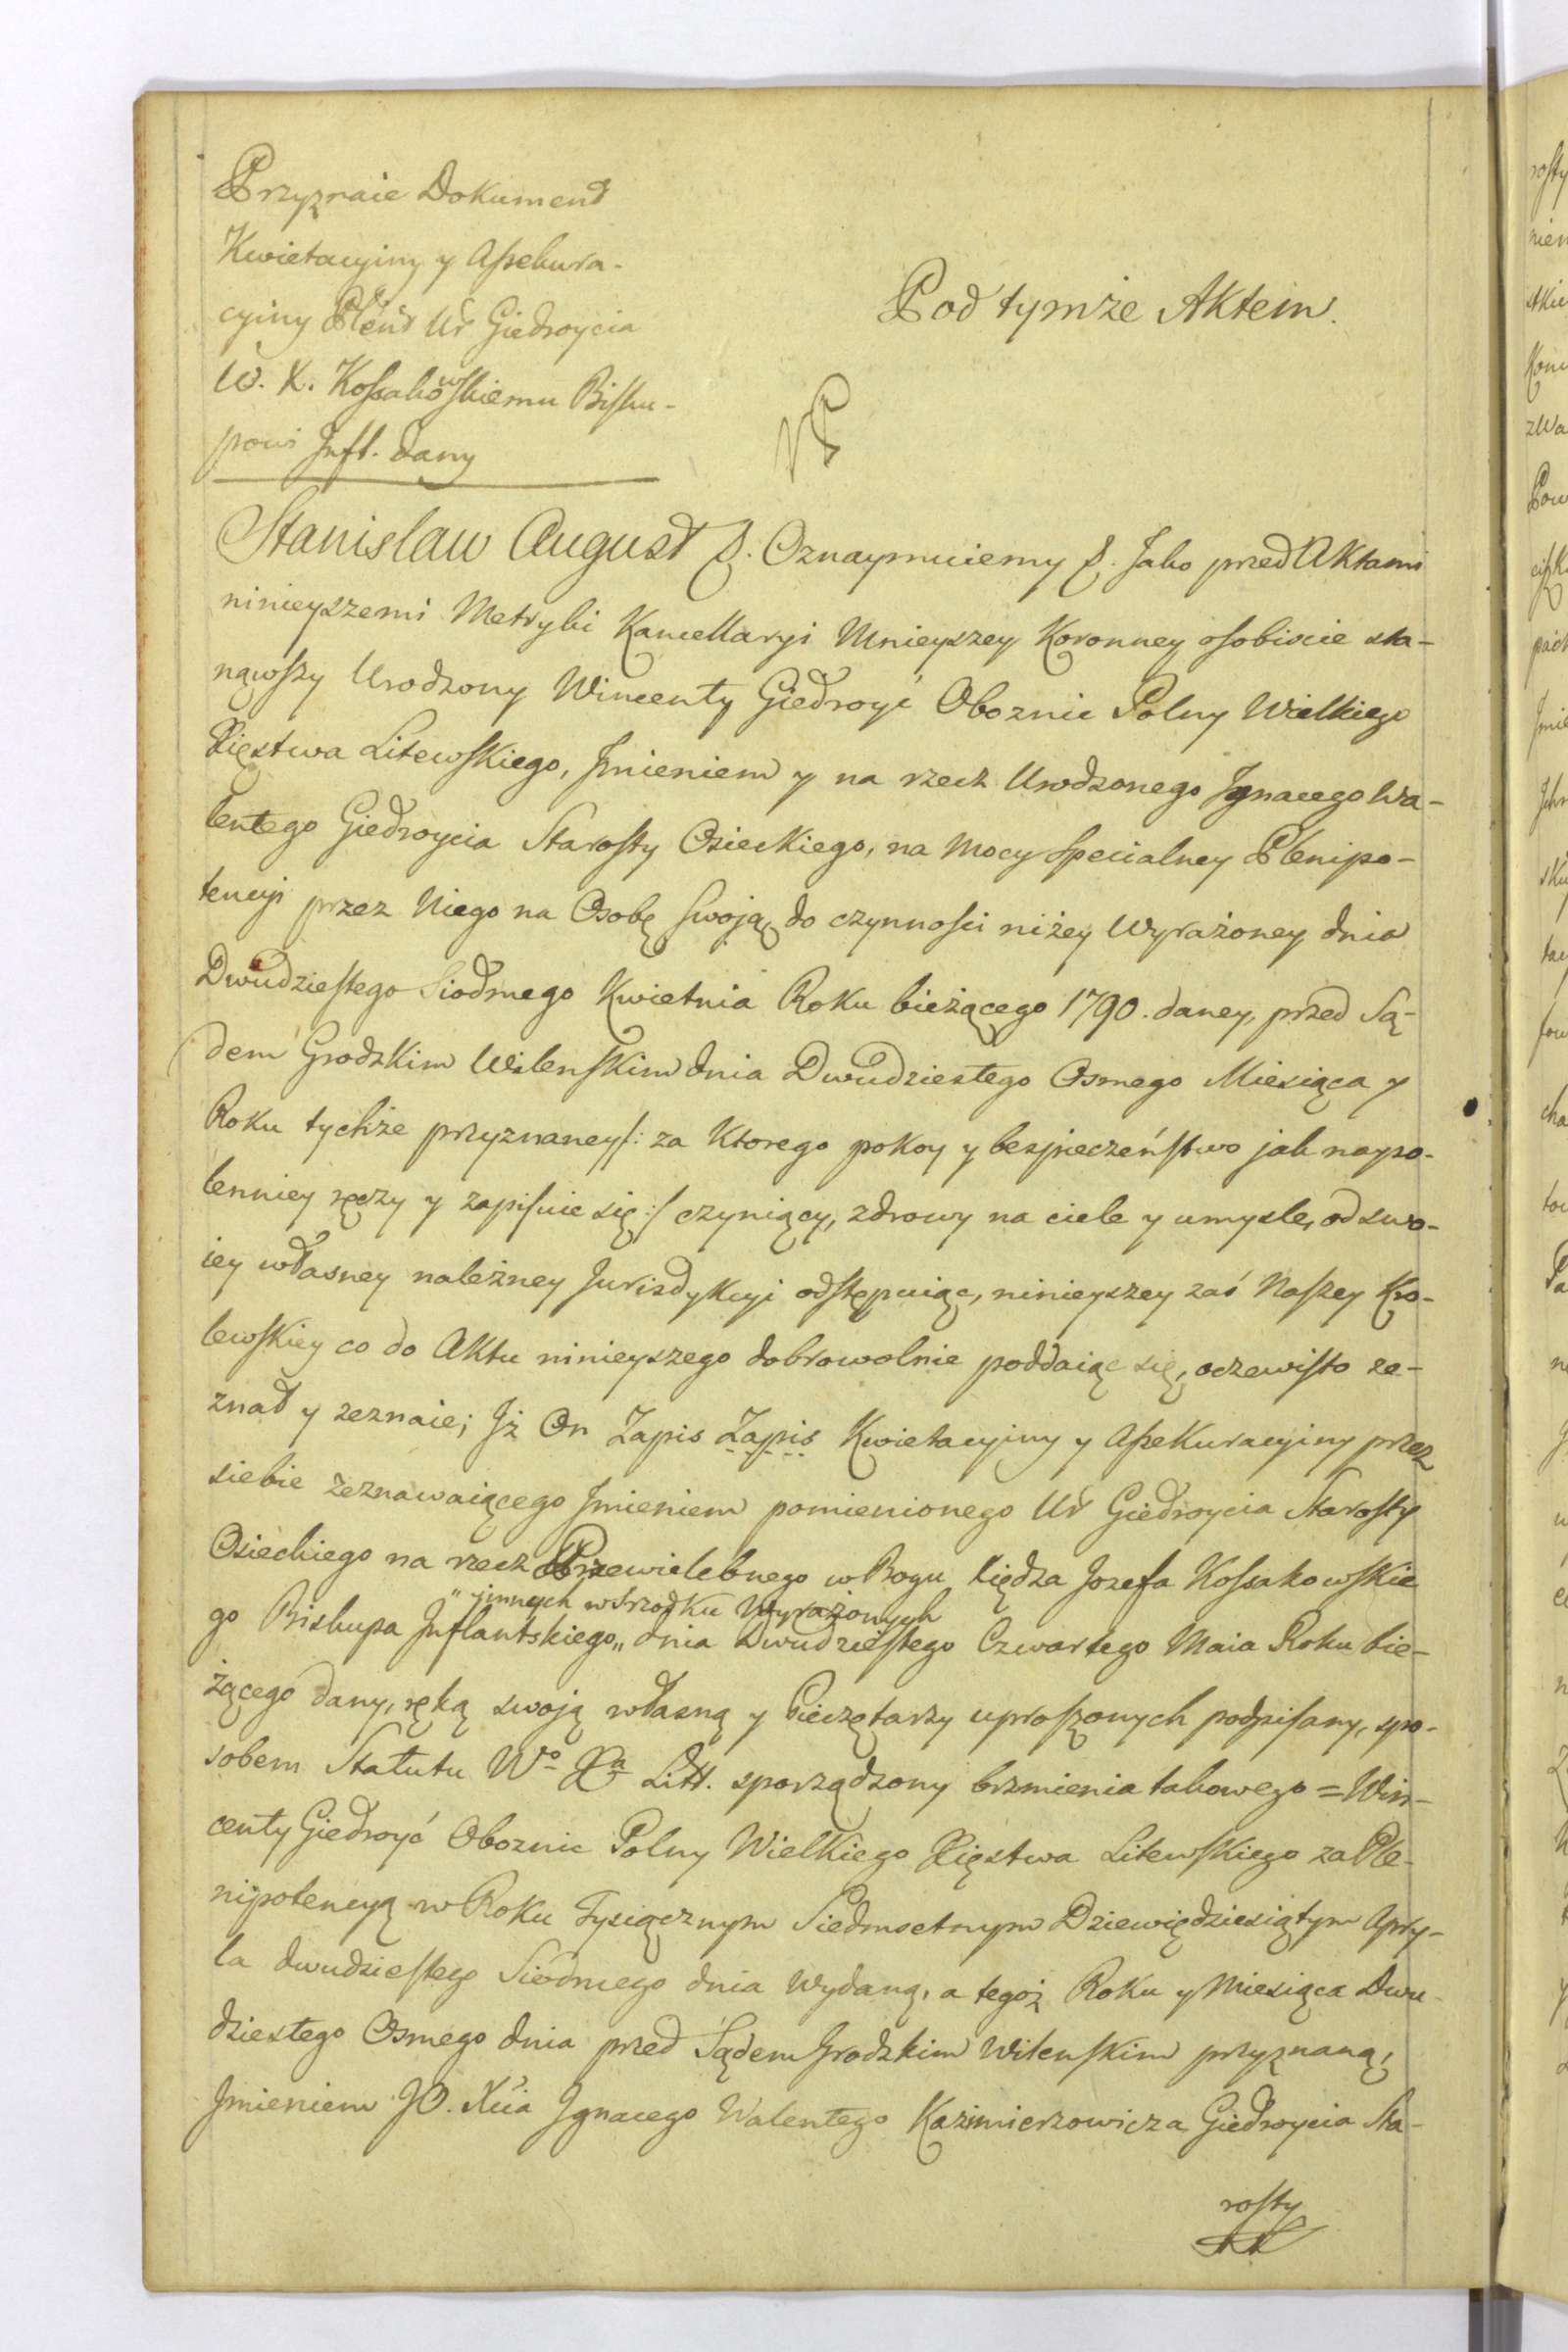 Przyznaie Dokument
Kwietacyiny y Assekura-
cyiny Plent Ur Giedroycia
W. X. Kossakowskiemu Bisku-
powi Infl. dany
Pod tymże Aktem.
Stanisław August &. Oznaymuiemy &. Jako przed Aktami
ninieyszemi Metryki Kancellaryi Mnieyszey Koronney osobiscie sta-
nąwszy Urodzony Wincenty Giedroyć Oboznic Polny Wielkiego
Xięstwa Litewskiego, Jmieniem y na rzecz Urodzonego Jgnacego Wa-
lentego Giedroycia Starosty Osieckiego, na Mocy Specialney Plenipo-
tencyi przez Niego na Osobę swoją do czynności niżey Wyrażoney dnia
Dwudziestego Siodmego Kwietnia Roku bieżącego 1790. daney, przed Są-
dem Grodzkim Wilenskim dnia Dwudziestego Osmego Miesiąca y
Roku tychże przyznaney /: za Ktorego pokoy y bespieczeństwo jak naypo-
lenniey ręczy y zapisuie się :/ czyniący, zdrowy na ciele y umysle, od swo-
iey własney należney Jurisdykcyi odstępuiąc, ninieyszey zaś Naszey Kro-
lewskiey co do Aktu ninieyszego dobrowolnie poddaiąc się, oczewisto ze-
znał y zeznaie; Jż On Zapis Zapis Kwietacyiny y Assekuracyiny przez
siebie zeznawaiącego Jmieniem pomienionego Ur Giedroycia Starosty
Osieckiego na rzecz Przewielebnego w Bogu Xiędza Jozefa Kossakowskie
" jnnych wsrzodku Wyrażonych
go Biskupa Jnflantskiego „ dnia Dwudziestego Czwartego Maia Roku bie-
żącego dany, ręką swoją własną y Pieczętarzy uproszonych podpisany, spo-
sobem Statutu Wo Xa Litt. sporządzony brzmienia takowego = Win-
centy Giedroyć Oboznic Polny Wielkiego Xięstwa Litewskiego za Ple-
nipotencyą w Roku Tysiącznym Siedmsetnym Dziewiędziesiątym Apry-
la dwudziestego Siódmego dnia Wydaną, a tegoż Roku y Miesiąca Dwu-
dziestego Osmego dnia przed Sądem Grodzkim Wilenskim przyznaną,
Jmieniem JO. Xcia Jgnacego Walentego Kazimierzowicza Giedroycia Sta-
rosty